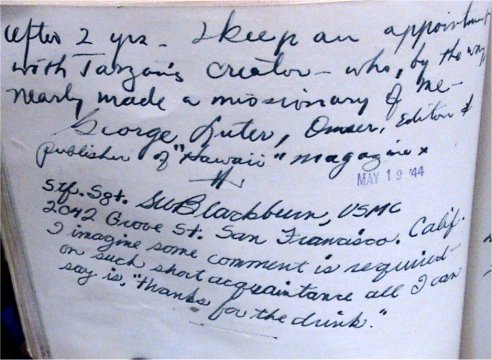 after 2 yrs - I keep an appointment
with Tarzan's creator - who, by the way
nearly made a missionary of me -
George Luter, Owner, Editor &
publisher of "Hawaii" magazine x
MAY 19 '44
Stf. Sgt. Blackburn, USMC
2042 Grove St. San Francisco. Calif.
I imagine some comment is required -
on such short acquaintance all I can
say is, "thanks for the drink."